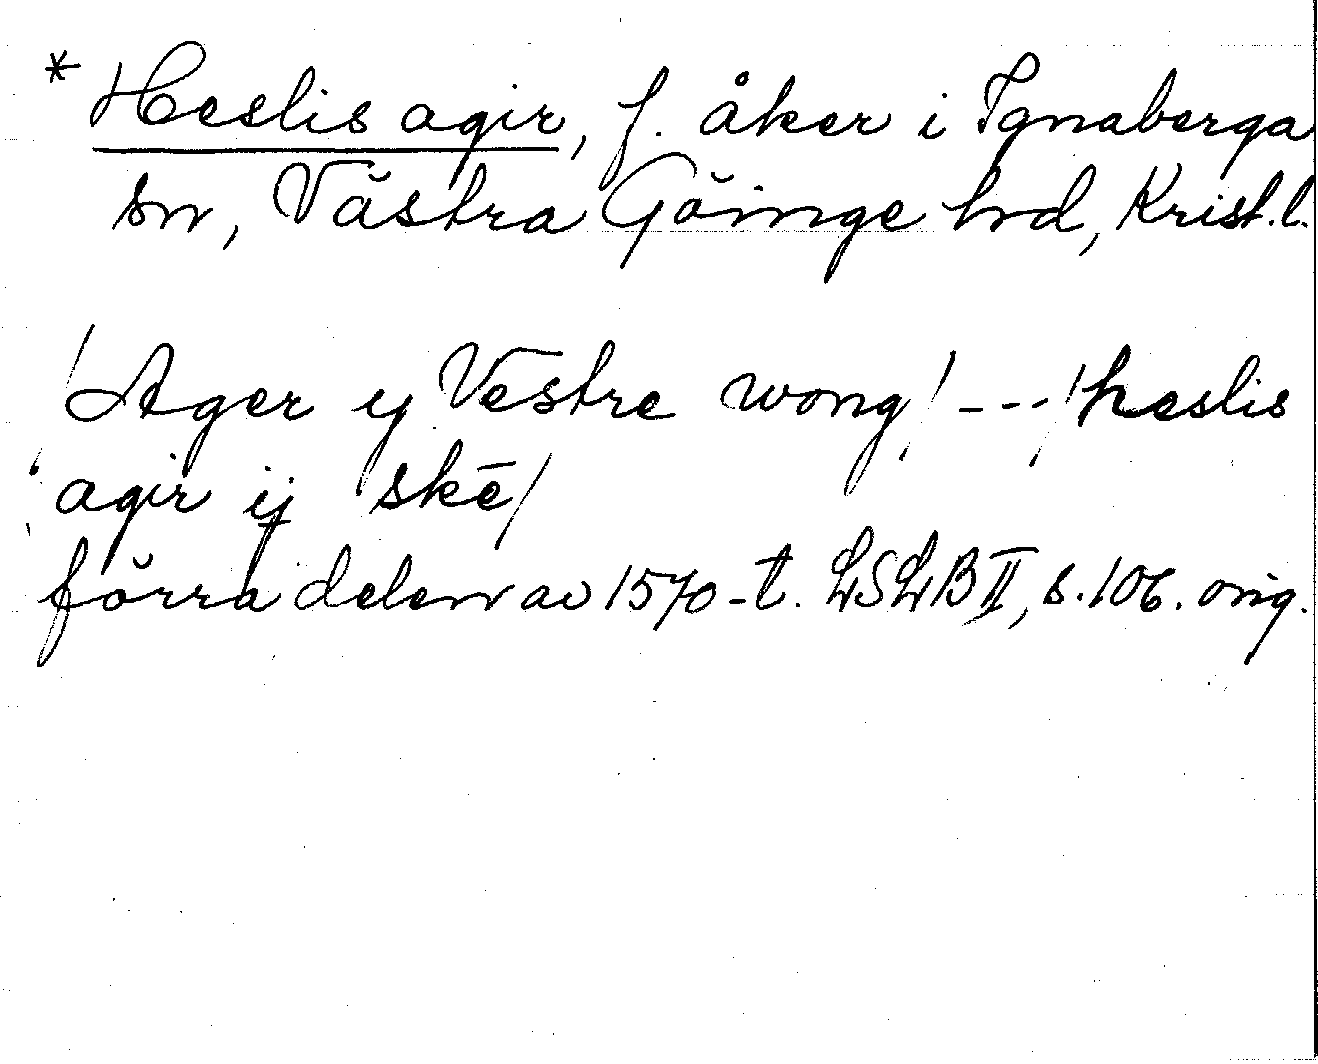 * Heslis agir, f. åker i Ignaberga
sn, Västra Göinge hrd, Krist.l.
/Ager y Vestre wong/ --- /heslis
agir ij skē/
förra delen av 1570-t. LSLB II, s.106. orig.